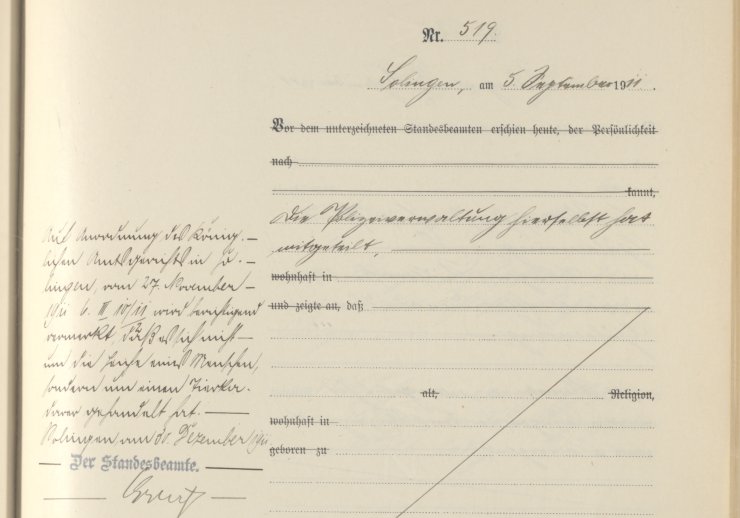 Nr. 519.
Solingen, am 5. September 1911.
Vor dem unterzeichneten Standesbeamten erschien heute, der Persönlichkeit
nach
kannt,
Die Polizeiverwaltung hierselbst hat
mitgeteilt,
wohnhaft in
und zeigte an, daß
alt, Religion,
wohnhaft in
geboren zu
Auf Anordnung des König-
lichen Amtsgerichts in So-
lingen, vom 27. November
1911 6. III 10/11 wird berichtigend
vermerkt, daß es sich nicht
um die Leiche eines Menschen,
sondern um einen Tierka-
daver gehandelt hat.
Solingen am 30. Dezember 1911
Der Standesbeamte.